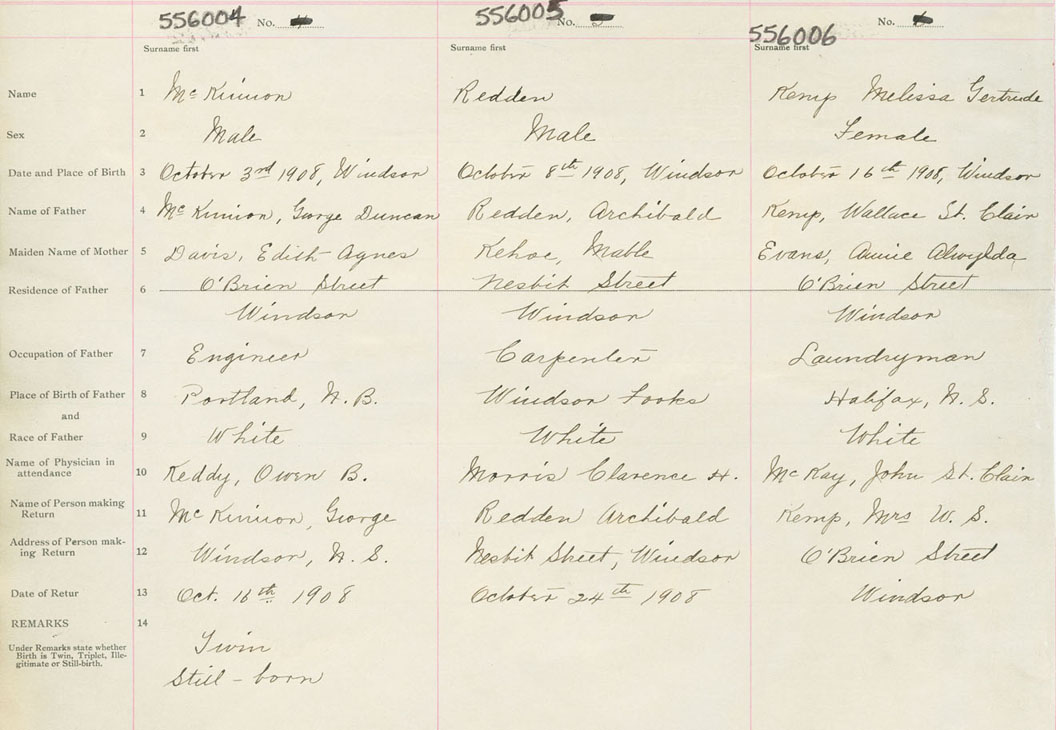 556004 No. 556005 No. 556006 No.
Surname first Surname first Surname first
Name 1 Mc Kinnon Redden Kemp Melissa Gertrude
Sex 2 Male Male Female
Date and Place of Birth 3 October 3rd 1908, Windsor October 8th 1908, Windsor October 16th 1908, Windsor
Name of Father 4 Mc Kinnon, George Duncan Redden, Archibald Kemp, Wallace St. Clair
Maiden Name of Mother 5 Davis, Edith Agnes Kehoe, Mable Evans, Annie Alwylda
Residence of Father 6 O'Brien Street Nesbit Street O'Brien Street
Windsor Windsor Windsor
Occupation of Father 7 Engineer Carpenter Laundryman
Place of Birth of Father 8 Portland, N. B. Windsor Forks Halifax, N. S.
and
Race of Father 9 White White White
Name of Physician in
attendance 10 Reddy, Owen B. Morris Clarence H. McKay, John St. Clair
Name of Person making
Return 11 Mc Kinnon, George Redden Archibald Kemp, Mrs W. S.
Address of Person mak-
ing Return 12 Windsor, N. S. Nesbit Street, Windsor O'Brien Street
Date of Retur 13 Oct. 16th 1908 October 24th 1908 Windsor
REMARKS 14
Under Remarks state whether
Birth is Twin, Triplet, Ille-
gitimate or Still-birth.
Twin
Still-born